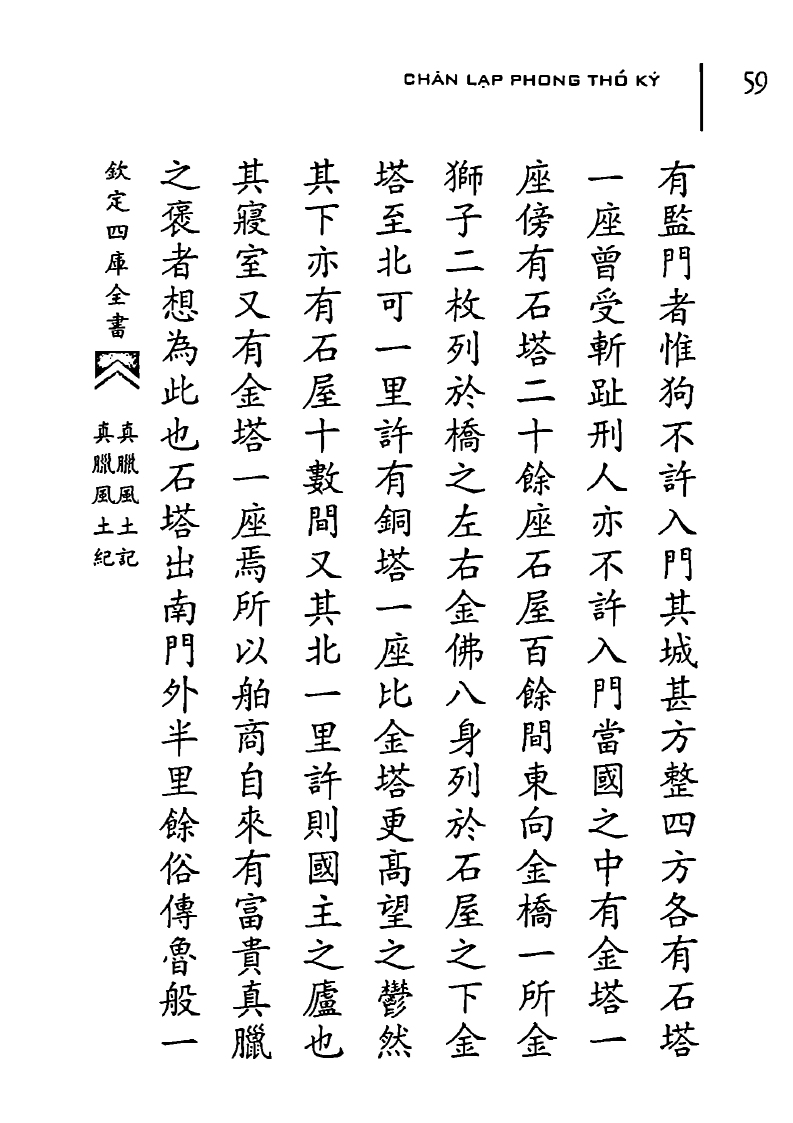 CHÂN LẠP PHONG THỔ KÝ
59
有監門者惟狗不許入門其城甚方整四方各有石塔
一座曾受斬趾刑人亦不許入門當國之中有金塔一
座傍有石塔二十餘座石屋百餘間東向金橋一所金
獅子二枚列於橋之左右金佛八身列於石屋之下金
塔至北可一里許有銅塔一座比金塔更髙望之鬱然
其下亦有石屋十數間又其北一里許則國主之廬也
其寢室又有金塔一座焉所以舶商自來有富貴真臘
之褒者想為此也石塔出南門外半里餘俗傳魯般一
欽定四庫全書
真臘風土記
真臘風土紀